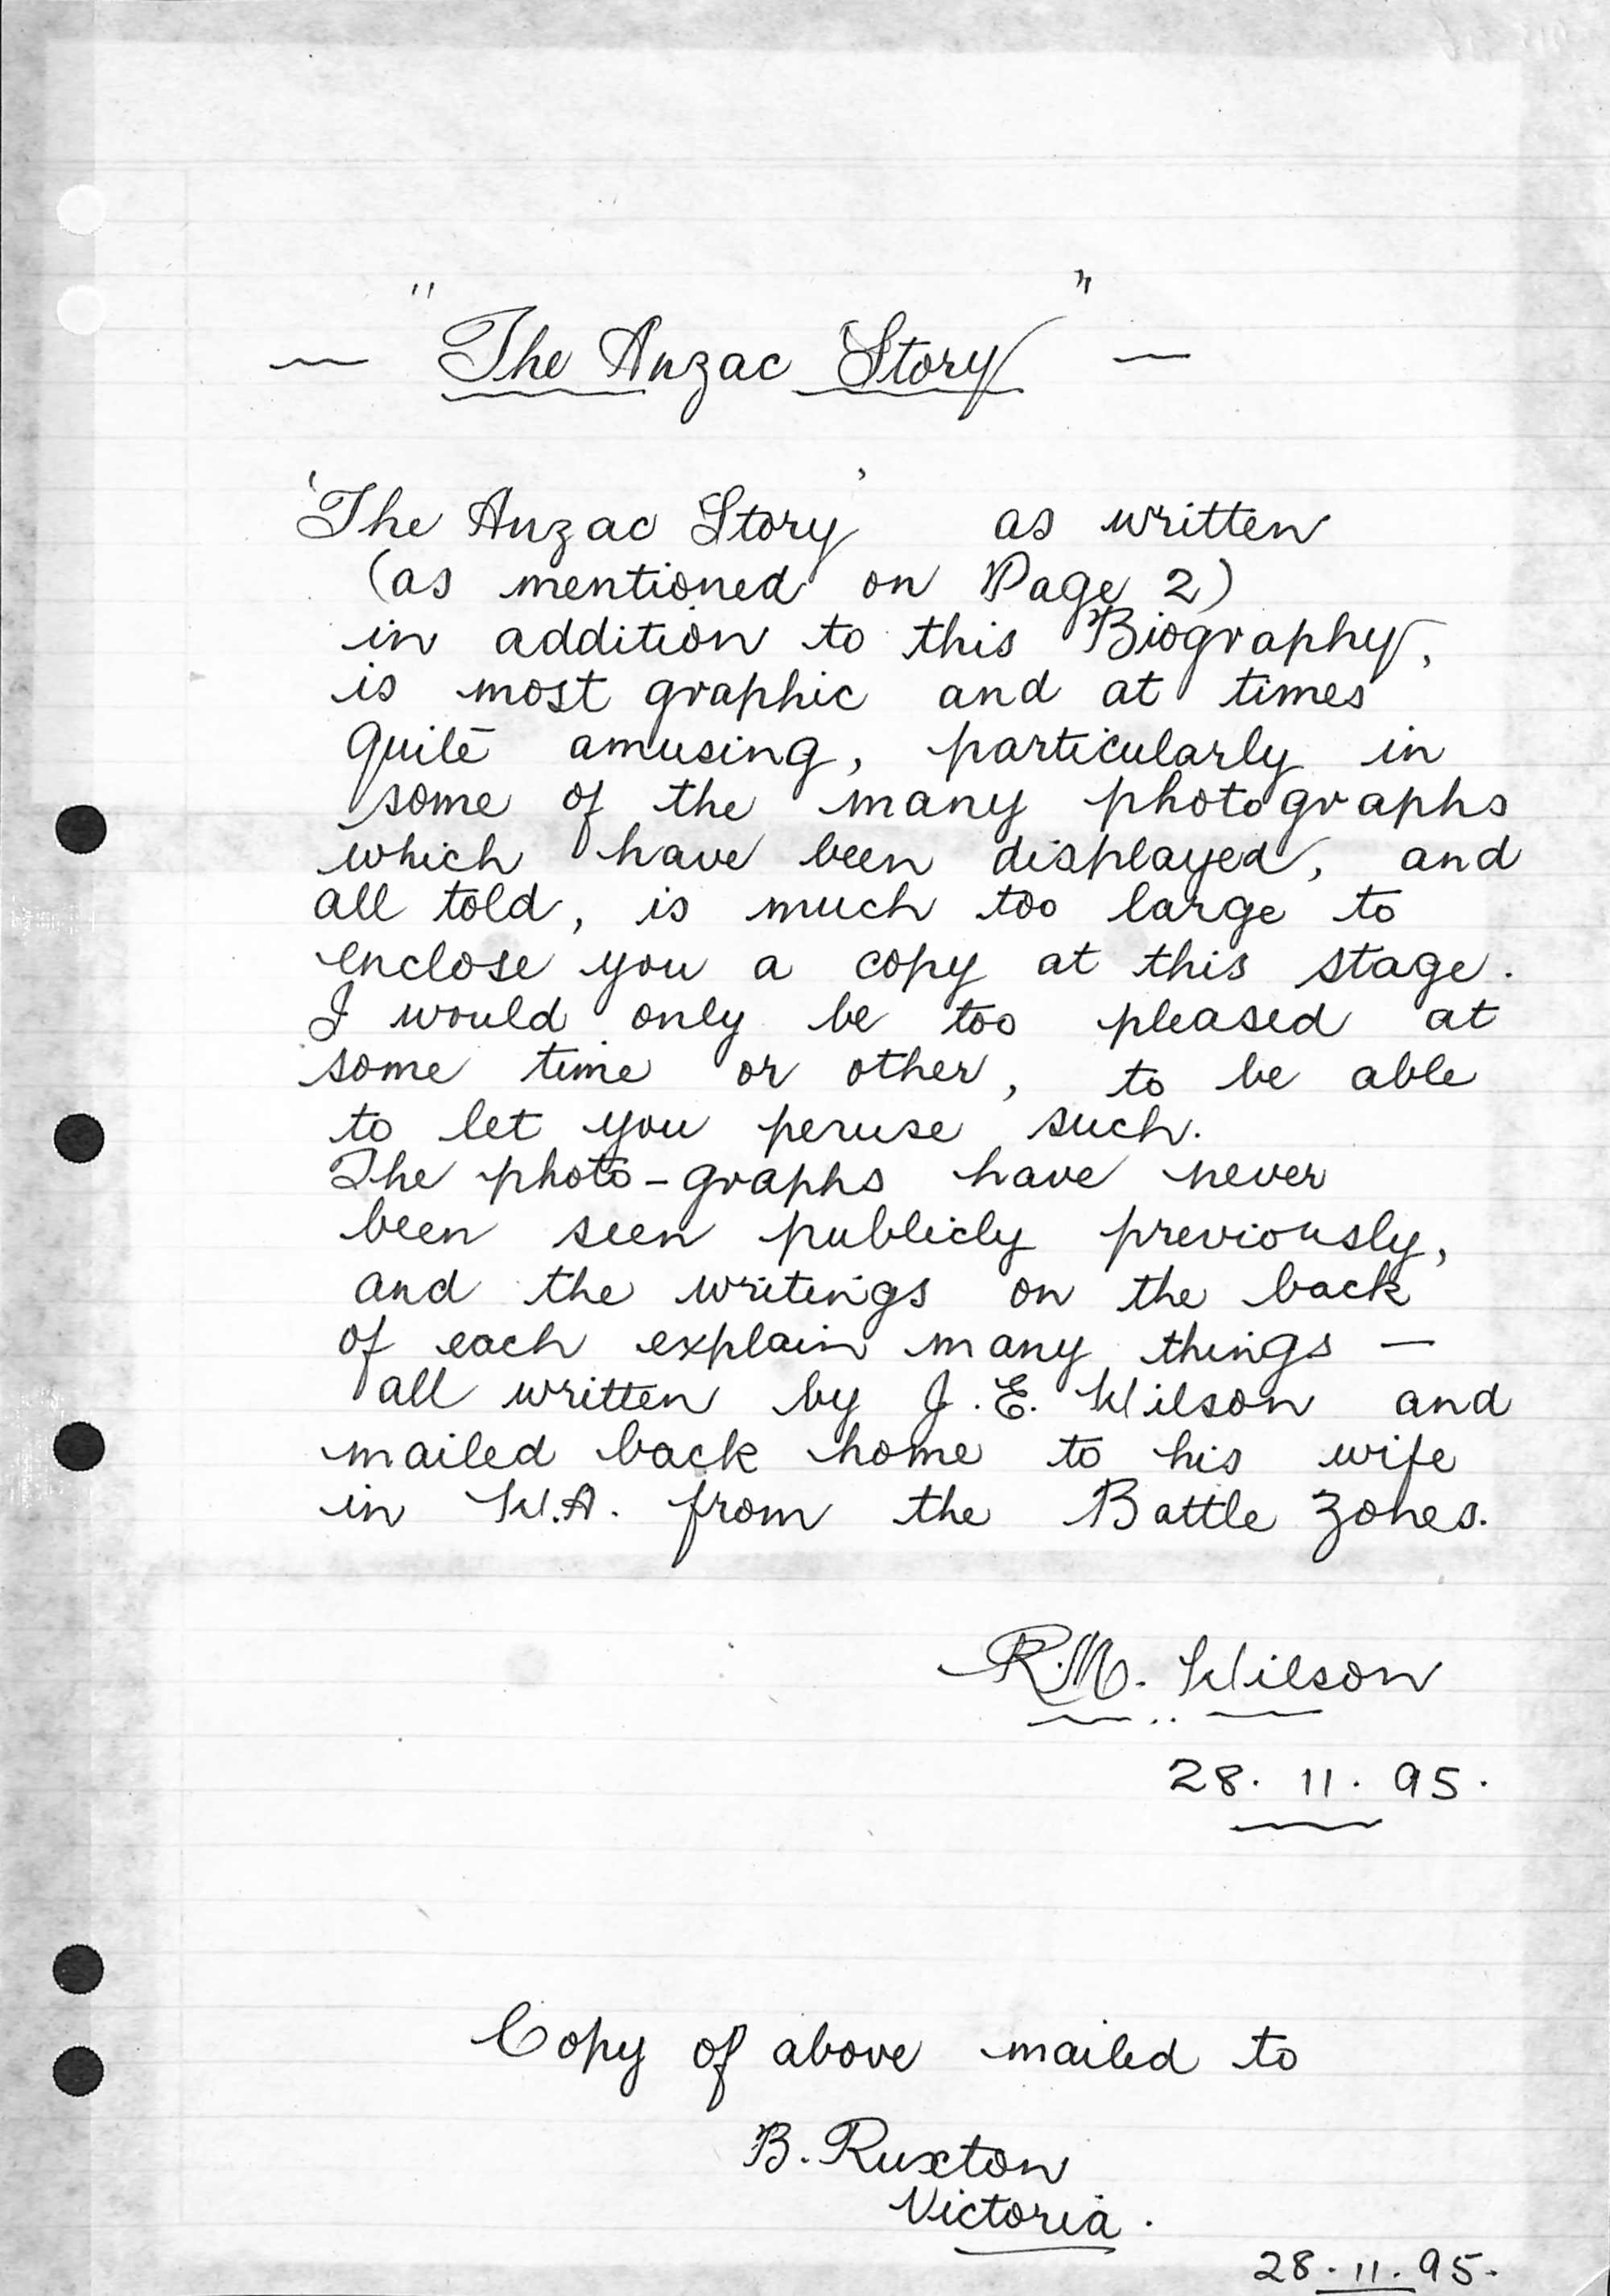 — "The Anzac Story" —
'The Anzac Story' as written
(as mentioned on Page 2)
in addition to this Biography,
is most graphic and at times
quite amusing, particularly in
some of the many photographs
which have been displayed, and
all told, is much too large to
enclose you a copy at this stage.
I would only be too pleased at
some time or other, to be able
to let you peruse such.
The photo-graphs have never
been seen publicly previously,
and the writings on the back
of each explain many things —
all written by J.E. Wilson and
mailed back home to his wife
in W.A. from the Battle Zones.
R.M. Wilson
28. 11. 95.
Copy of above mailed to
B. Ruxton
Victoria.
28.11.95.